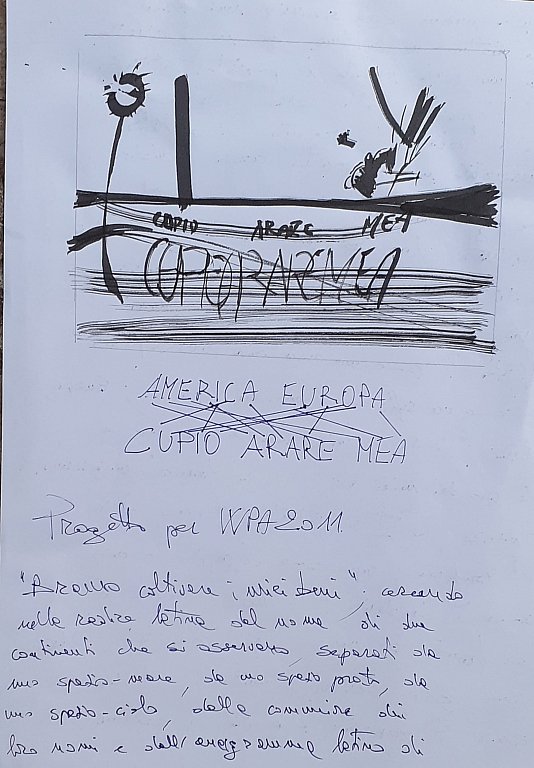 CUPIO ARARE MEA
CUPIO ARARE MEA
AMERICA EUROPA
CUPIO ARARE MEA
Progetto per WPA 2011
"Bramo coltivare i miei beni": cercando
nella radice latina del nome di due
continenti che si osservano, separati da
uno spazio-mare, da uno spazio prato, da
uno spazio-cielo, dalla comunione dei
loro nomi e dall'anagramma latino di